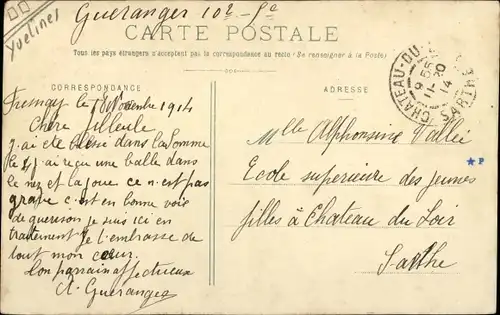 Yvelines
Gueranger 102e Ie
CARTE POSTALE
Tous les pays étrangers n'acceptent pas la correspondance au recto (Se renseigner à la Poste)
CORRESPONDANCE
Fresnay le 18 Novembre 1914
Chère filleule
j'ai été blessé dans la Somme
le 4 j'ai reçu une balle dans
le nez et la joue ce n'est pas
grave c'est en bonne voie
de guerison je suis ici en
traitement je t'embrasse de
tout mon cœur.
ton parrain affectueux
A. Gueranger
ADRESSE
CHATEAU-DU-
SARTHE
9 55
14
Mlle Alphonsine Vallée
Ecole superieure des jeunes
filles à Chateau du Loir
Sarthe
P